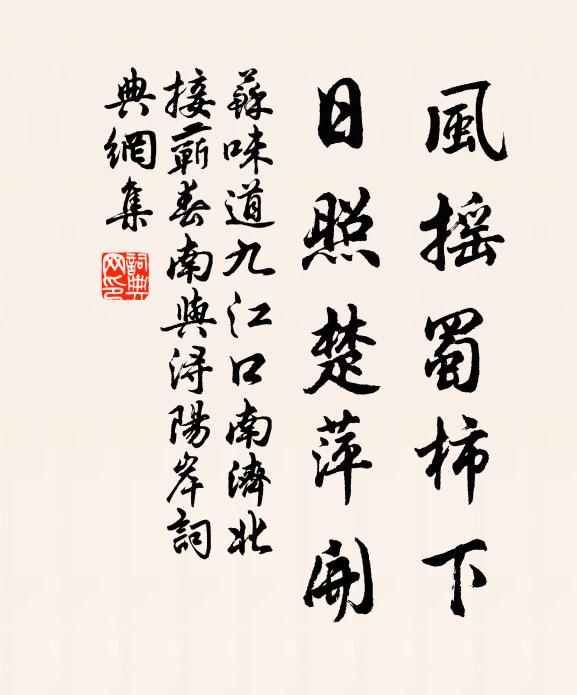 風摇蜀柿下
日照楚萍開
蘇味道九江口南濟北
接蘄春南與潯陽岸詞
典網集
詞典
网印